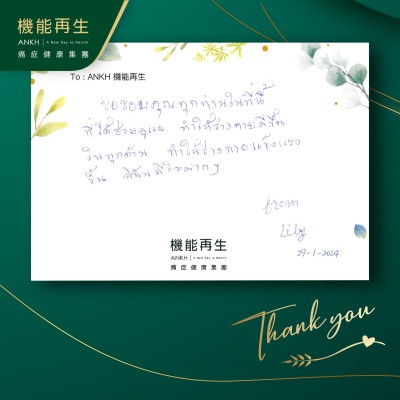 機能再生
ANKH | A New Key to Health
痛症健康集團
To : ANKH 機能再生
ขอขอบคุณทุกท่านในที่นี้
ที่ได้ช่วยดูแล ทำให้ร่างกายดีขึ้น
ในทุกด้าน ทำให้ร่างกายแข็งแรง
ขึ้น ดีขึ้นดีใจมากๆ
from
Lily
29-1-2024
機能再生
ANKH | A New Key to Health
痛症健康集團
Thank you